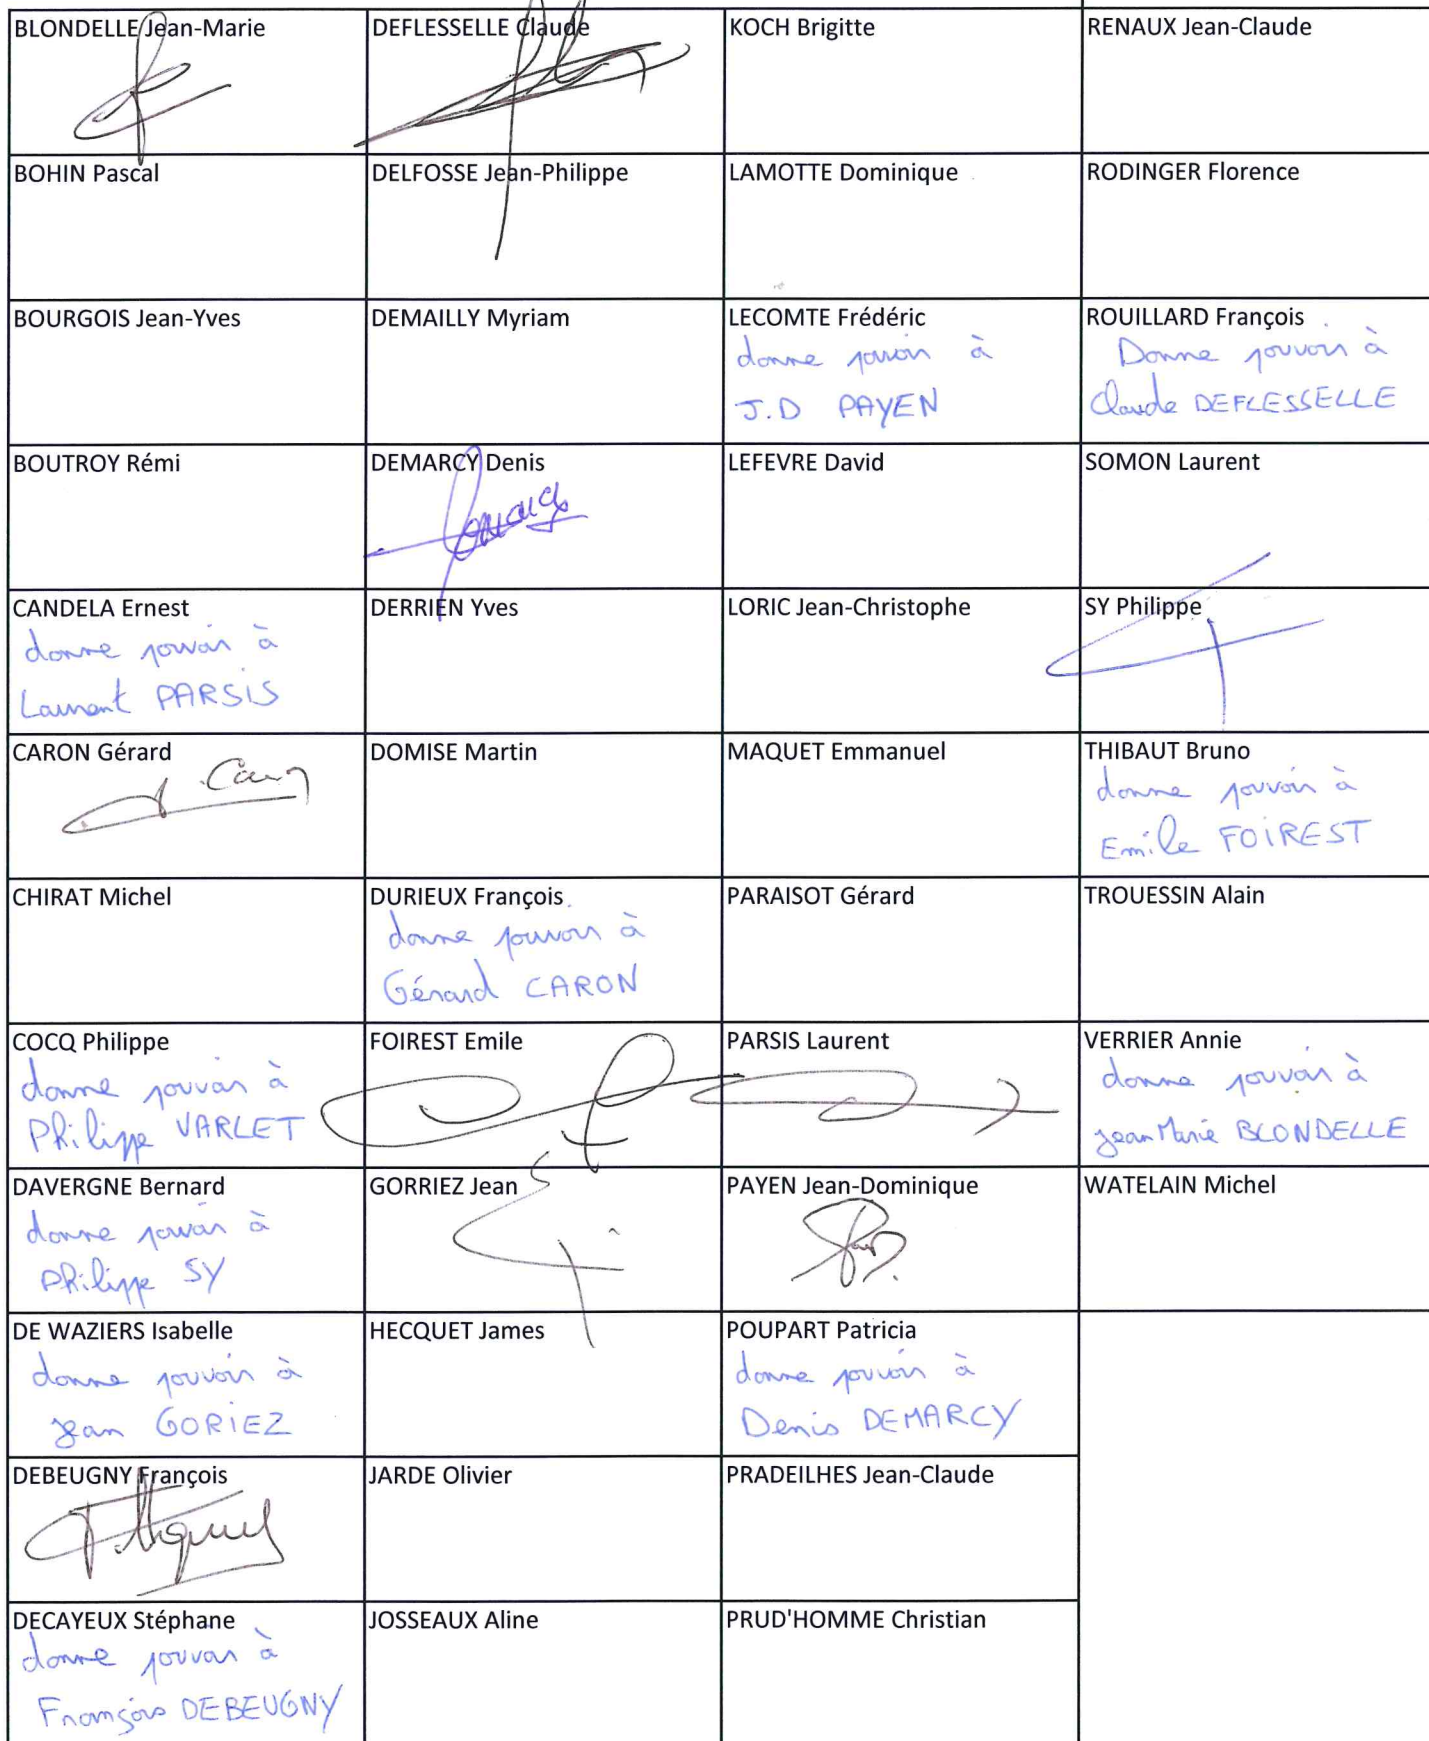 BLONDELLE Jean-Marie
DEFLESSELLE Claude
KOCH Brigitte
RENAUX Jean-Claude
BOHIN Pascal
DELFOSSE Jean-Philippe
LAMOTTE Dominique
RODINGER Florence
BOURGOIS Jean-Yves
DEMAILLY Myriam
LECOMTE Frédéric
donne pouvoir à
J.D PAYEN
ROUILLARD François
Donne pouvoir à
Claude DEFLESSELLE
BOUTROY Rémi
DEMARCY Denis
LEFEVRE David
SOMON Laurent
CANDELA Ernest
donne pouvoir à
Laurent PARSIS
DERRIEN Yves
LORIC Jean-Christophe
SY Philippe
CARON Gérard
DOMISE Martin
MAQUET Emmanuel
THIBAUT Bruno
donne pouvoir à
Emile FOIREST
CHIRAT Michel
DURIEUX François
donne pouvoir à
Gérard CARON
PARAISOT Gérard
TROUESSIN Alain
COCQ Philippe
donne pouvoir à
Philippe VARLET
FOIREST Emile
PARSIS Laurent
VERRIER Annie
donne pouvoir à
Jean Marie BLONDELLE
DAVERGNE Bernard
donne pouvoir à
Philippe SY
GORRIEZ Jean
PAYEN Jean-Dominique
WATELAIN Michel
DE WAZIERS Isabelle
donne pouvoir à
Jean GORIEZ
HECQUET James
POUPART Patricia
donne pouvoir à
Denis DEMARCY
DEBEUGNY François
JARDE Olivier
PRADEILHES Jean-Claude
DECAYEUX Stéphane
donne pouvoir à
François DEBEUGNY
JOSSEAUX Aline
PRUD'HOMME Christian